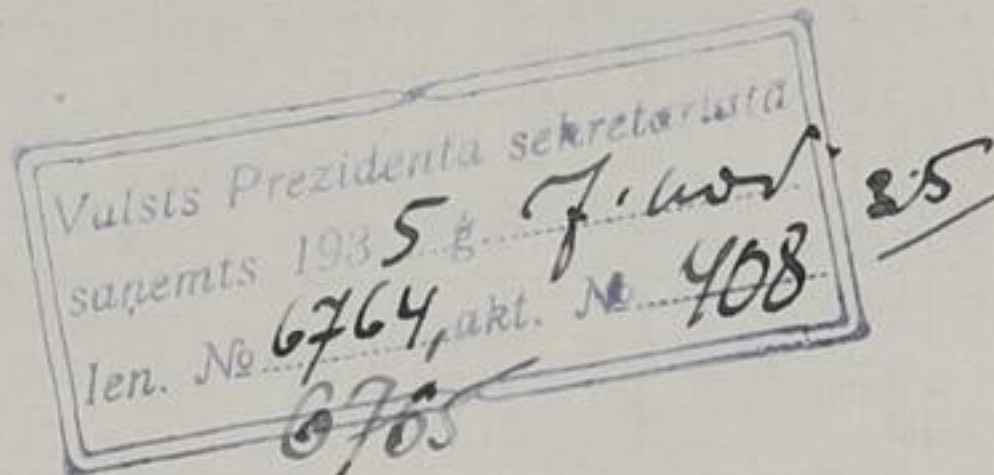 Valsts Prezidenta sekretariatā
saņemts 1935 g. 7. nov. 25
Ien. № 6764, akt. № 408
6765